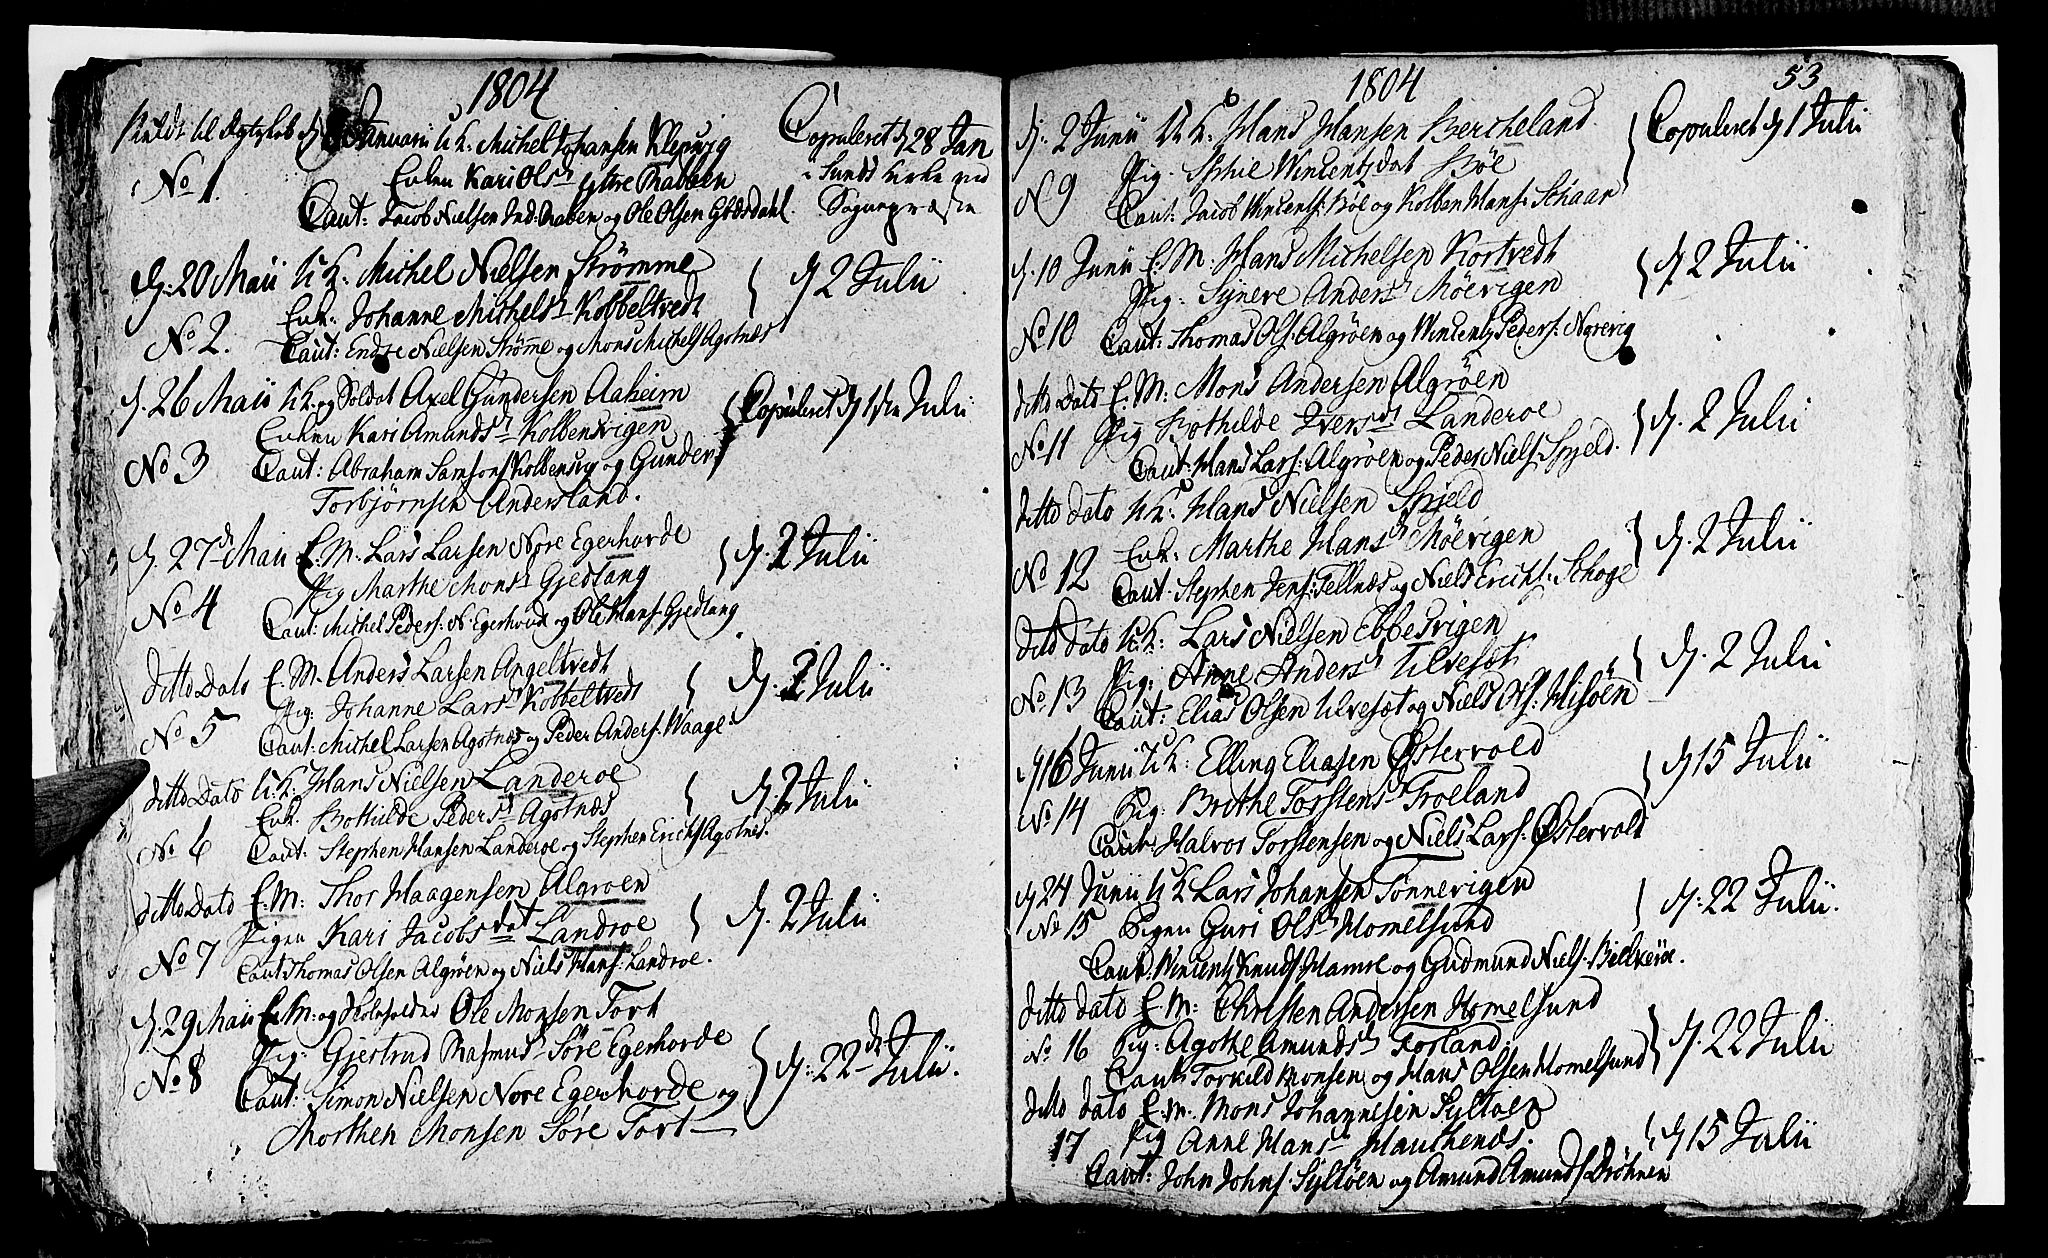 1804
Meldt til Ægteskab d. Januarii U.K. Michel Johansen Klepsvig
Enken Kari Ols.D. Yttre Rabben
No 1.
Caut: Jacob Nielsen Ind: Raben og Ole Olsen Giæsdahl.
Copuleret d. 28 Jan
i Sunds kirke ved
Sognepræsten
d. 20 Maii U.K. Michel Nielsen Strømme
Enk. Johanne Michels.D. Kobbeltvedt
No 2.
Caut: Endre Nielsen Strømme og Mons Michels. Agotnæs
d. 2 Julii
d. 26 Maii U.K. og Soldat Axel Gundersen Aaheim
Enken Kari Amunds.D. Kolbensvigen
No 3
Caut: Abraham Samsons. Kolbensvig og Gunder
Torbjørnsen Andersland.
Copuleret d. 1ste Julii
d. 27de Maii E.M. Lars Larsen Nore Egerhorde
Pig Marthe Mons.D. Gjedtang
No 4
Caut: Michel Peders: N: Egerhorde og Ole Hans. Gjedtang
d. 2 Julii
ditto Dato E.M. Anders Larsen Angeltvedt
Pig. Johanne Lars.D. Kobbeltvedt
No 5
Caut: Michel Larsen Agotnæs og Peder Anders. Waage
d. 2 Julii
ditto Dato U.K. Hans Nielsen Landeroe
Enk. Bothilde Peders.D. Agotnæs
No 6
Caut: Stephen Hansen Landeroe og Stephen Ericks. Agotnes.
d. 2 Julii
ditto Dato E.M: Thor Haagensen Algroen
Pigen Kari Jacobsdat Landroe
No 7
Caut Thomas Olsen Algrøen og Niels Hans: Landroe.
d. 2 Julii
d. 29 Maii E.M: og Ole Monsen Tort
Pig: Gjertrud Rasmus.D. Søre Egerhorde
No 8
Caut: Simon Nielsen Nore Egerhorde og
Morthen Monsen Søre Tort
d: 22de Julii.
1804
53
d: 2 Junii U.K. Hans Hansen Bercheland
Pig. Sphie Wincentzdat Bøe
N 9
Caut: Jacob Wincents: Bøe og Kolben Hans: Schaar
Copuleret d. 1 Julii
d. 10 Junii E.M. Hans Michelsen Kortvedt
Pig: Synere Anders.D. Møevigen
No 10
Caut: Thomas Ols. Algrøen og Wincentz Peders: Norevig
d. 2 Julii
ditto Dato E.M: Mons Andersen Algrøen
Pig Bothilde Ivers.D. Landeroe
No 11
Caut: Hans Lars: Algrøen og Peder Niels. Spjeld.
d. 2 Julii
ditto dato U.K: Hans Nielsen Spjeld
Enk: Marthe Hans.D. Møevigen
No 12
Caut. Stephen Jens: Tellnæs og Niels Erichs: Schoge
d. 2 Julii
ditto Dato U.K: Lars Nielsen Ebbesvigen
Pig: Anne Anders.D. Ulvesæt
No 13
Caut: Elias Olsen Ulvesæt og Niels Ols: Misøen
d. 2 Julii
d 16 Junii U.K: Elling Eliasen Østervold
No 14 Pig: Brethe Torstens.D. Troeland
Caut: Halvor Torstensen og Niels Lars: Østervold
d 15 Julii
d 24 Junii U.K Lars Johansen Tønnevigen
No 15 Pigen Guri Ols.D. Homelsund
Caut. Wincentz Knuds. Hamre og Gudmund Niels. Bielkerøe.
d: 22 Julii.
ditto Dato E.M: Christen Andersen Homelsund
No 16 Pig: Agothe Amunds.D. Forland.
Caut: Torkild Monsen og Hans Olsen Homelsund
d. 22 Julii
ditto dato E.M. Mons Johannesen Syltøen
17 Pig Anne Hans.D. Hauthenæs.
Caut: John Johns. Syltøen og Amund Amunds. Drønen
d 15 Julii